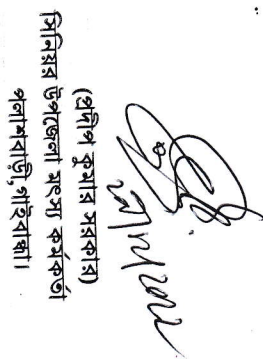 (প্রদীপ কুমার সরকার)
সিনিয়র উপজেলা মৎস্য কর্মকর্তা
পলাশবাড়ী, গাইবান্ধা।